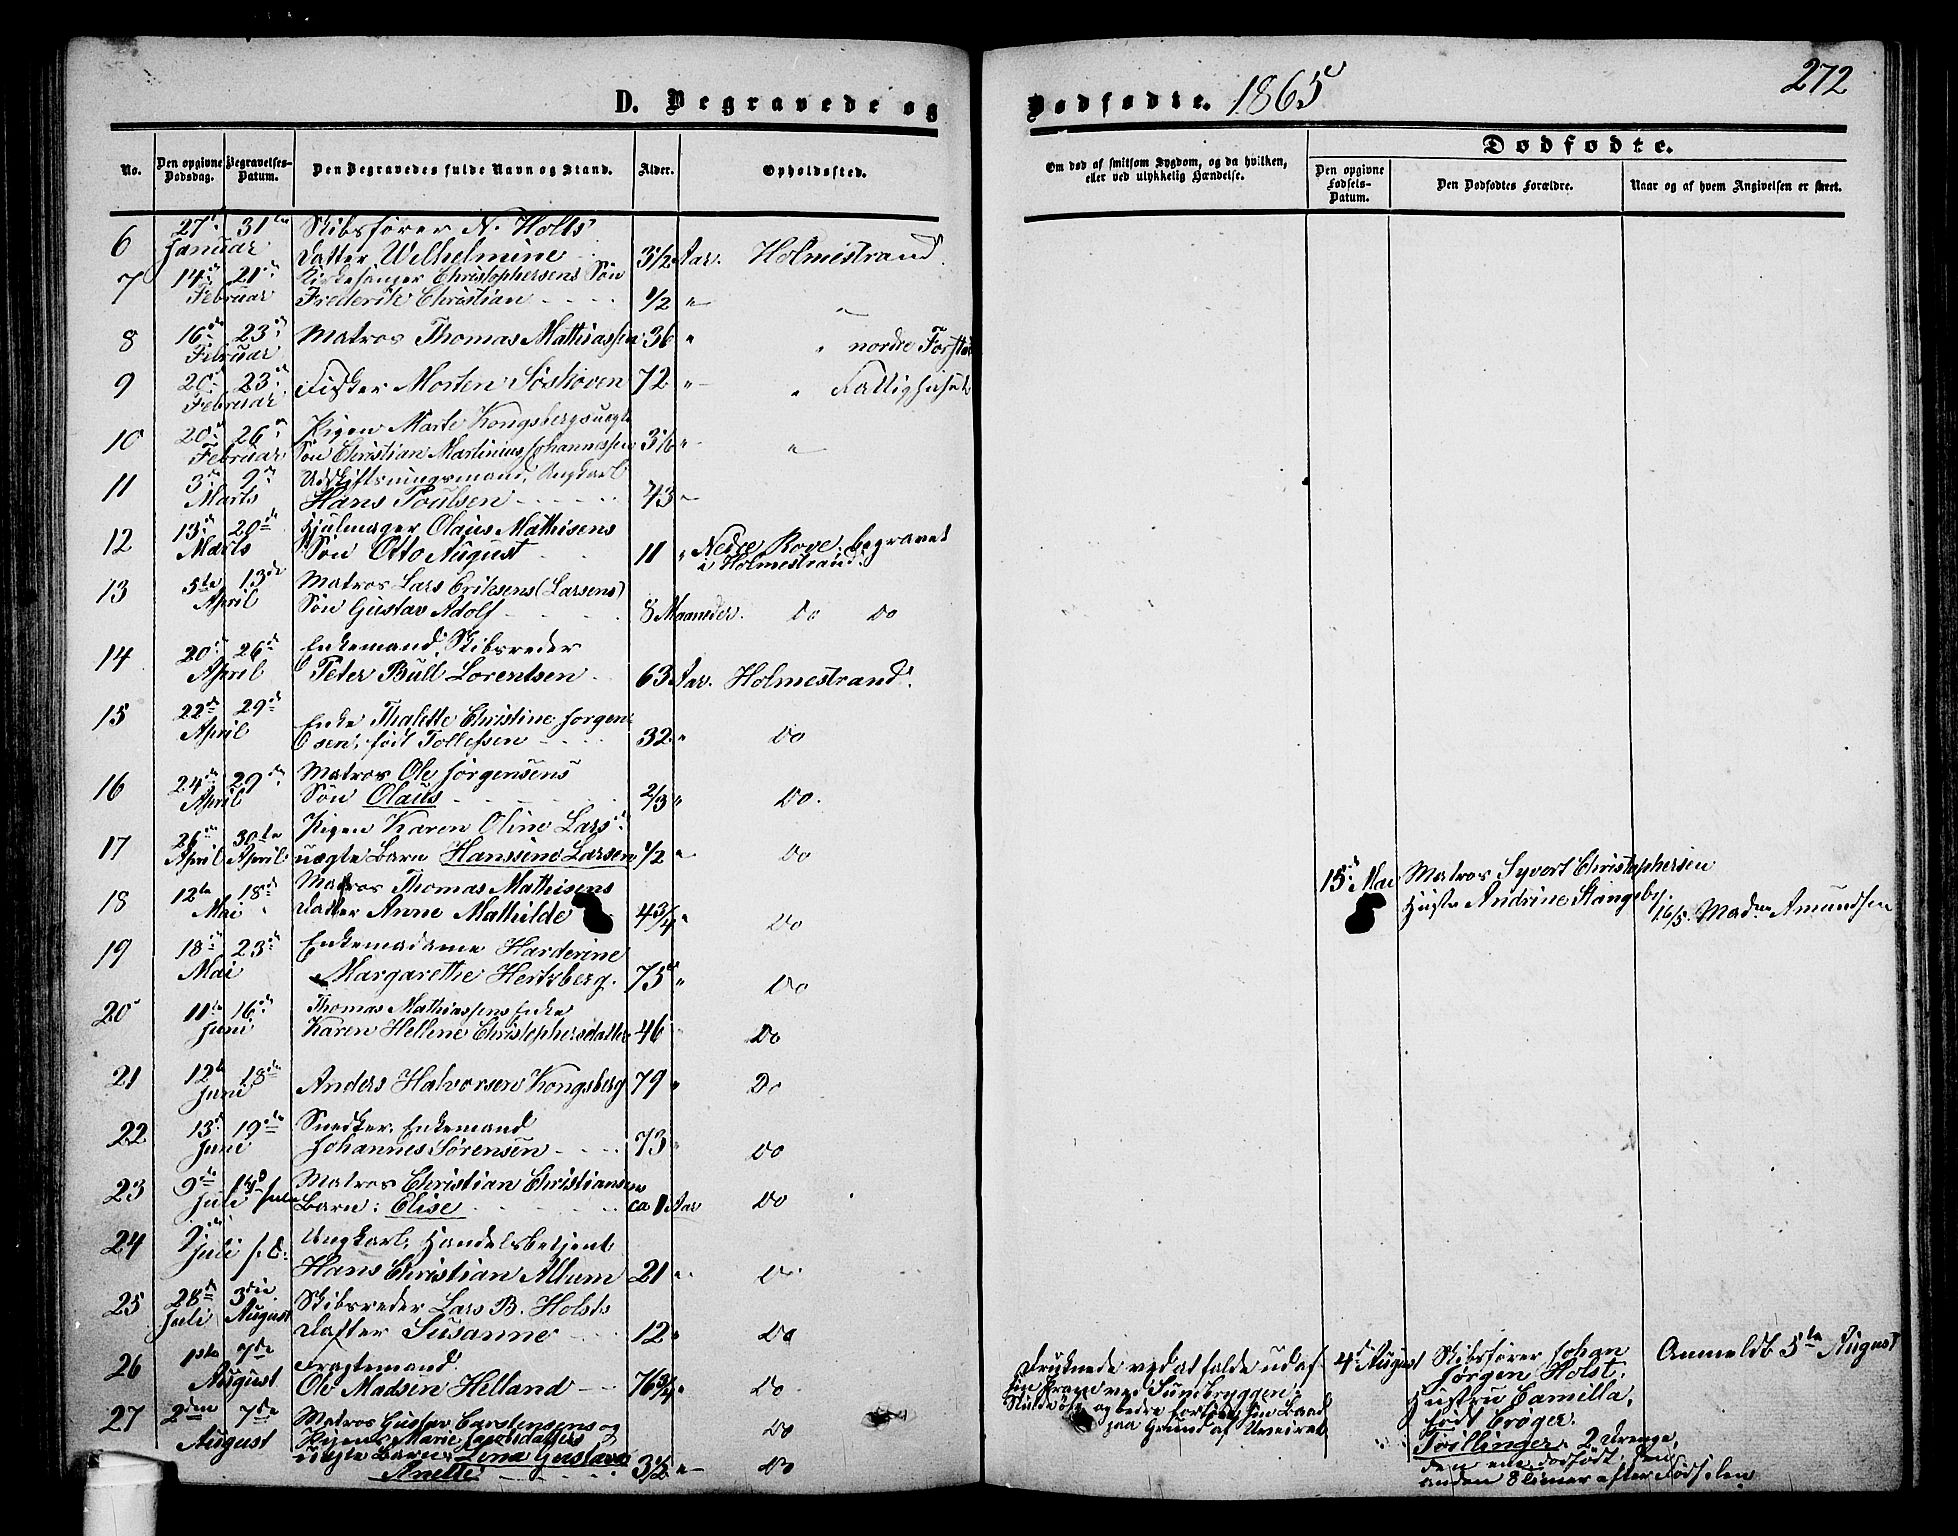 272
D. Begravede og Dødfødte. 1865
Dødfødte.
No.
Den opgivne Dødsdag.
Begravelses-Datum.
Den Begravedes fulde Navn og Stand.
Alder.
Opholdssted.
Om død af smitsom Sygdom, og da hvilken, eller ved ulykkelig Hændelse.
Den opgivne Fødsels-Datum.
Den Dødfødtes Forældre.
Naar og af hvem Angivelsen er skeet.
6 27 31te Skibsfører N. Holts
Januar Datter Wilhelmine 3 1/2 Aar. Holmestrand
7 14de 21de Kirkesanger Christophersens Søn
Februar Frederik Christian 1/2 "
8 16de 23de Matros Thomas Mathiassen 36 " " nordre Forstad
Februar
9 20de 23de Fisker Morten Søskoven 72 " " Fattighuset
Februar
10 20de 26de Pigen Marte Kongsbergs uægte
Februar Søn Christian Martinius Johannessen " "
11 3de 9de Udskiftningsmand, Ungkarl
Marts Hans Poulsen 43 "
12 13de 20de Hjulmager Olaus Mathisens
Marts Søn Otto August 11 " Nedre Rove, begravet
i Holmestrand.
13 5te 13de Matros Lars Eriksens (Larsens)
April Søn Gustav Adolf 8 Maaneder. Do Do
14 20de 26de Enkemand, Skibsreder
April Peter Bull Lorentsen 63 Aar. Holmestrand.
15 22de 29de Enke Thalette Christine Jørgen-
April sen, født Tollefsen 32 " Do
16 24de 29de Matros Ole Jørgensens
April Søn Olaus 2/3 " Do.
17 26de 30te Pigen Karen Oline Lars d.
April April uægte Barn Hansine Larsen 1/2 " Do
18 12te 18de Matros Thomas Mathisens
Mai Datter Anne Mathilde 4 3/4 " Do
15de Mai Matros Syvert Christophersen
Hustr Andrine Stangeby. 16/5. Madme Amundsen
19 18de 23de Enkemadame Harderine
Mai Margarethe Hertzberg. 75 " Do
20 11te 16de Thomas Mathiassens Enke
Juni Karen Hellene Christophersdatter 46 Do
21 12te 18de Anders Halvorsen Kongsberg 79 " Do
Juni
22 13de 19de Snedker, Enkemand
Juni Johannes Sørensen 73 " Do
23 9de Matros Christian Christiansens
Juli Barn: Elise ca 1 Aar Do
24 Ungkarl, Handelsbetjent
Juli Hans Christian Allum 21 " Do
25 28de 3die Skibsreder Lars B. Holsts
Juli August Datter Susanne 12 " Do
26 1ste 7de Fragtemand
August Ole Madsen Helland 76 3/4 " Do
Druknede ved at falde ud af
sin Pram ved Sundbryggen,
paa Grund af Uveiret
4de August Skibsfører Johan
Jørgen Holst,
Hustru Camilla,
født Crøger
Tvillinger, 2 Drenge,
den ene dødfødt, den
anden 8 Timer efter Fødselen
Anmeldt 5te August
27 2den 7de Matros Gustav Carstensens og
August Pigen Marie Jacobsdatters Do
uægte Barn: Lina Gustava
Anette 3 1/2 " Do